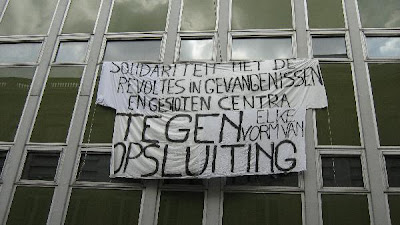 SOLIDARITEIT MET DE
REVOLTES IN GEVANGENISSEN
EN GESLOTEN CENTRA
TEGEN ELKE
VORM VAN
OPSLUITING